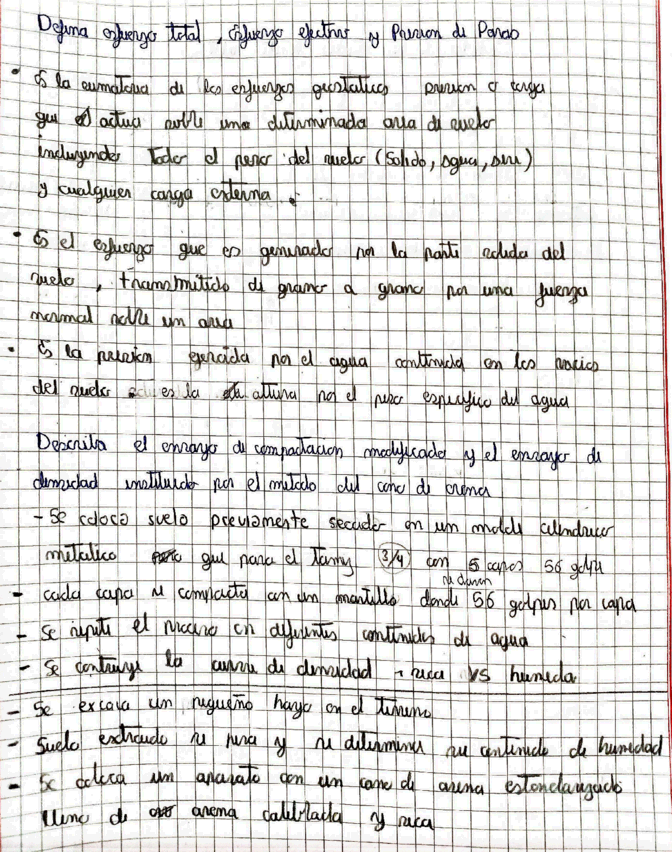 Defina esfuerzo total, esfuerzo efectivo y Presion de Poros
• Es la sumatoria de los esfuerzos geostaticos presion o carga
que actua sobre una determinada area de suelo
incluyendo todo el peso del suelo (Solido, agua, aire)
y cualquier carga externa.
• Es el esfuerzo que es generado por la parte solida del
suelo, transmitido de grano a grano por una fuerza
normal sobre un area
• Es la presion ejercida por el agua contenida en los vacios
del suelo es la altura por el peso especifico del agua
Describa el ensayo de compactacion modificado y el ensayo de
densidad instituido por el metodo del cono de arena
- Se coloca suelo previamente secado en un molde cilindrico
metalico que pasa el Tamiz 3/4 con 5 capas 56 golpes
- cada capa se compacta con un martillo donde se daran 56 golpes por capa
- Se repite el proceso en diferentes contenidos de agua
- Se contruye la curva de densidad - seca VS humeda
- Se excava un pequeño hoyo en el terreno
- Suelo extraido se pesa y se determina su contenido de humedad
- Se coloca un aparato con un cono de arena estandarizado
lleno de arena calibrada y seca